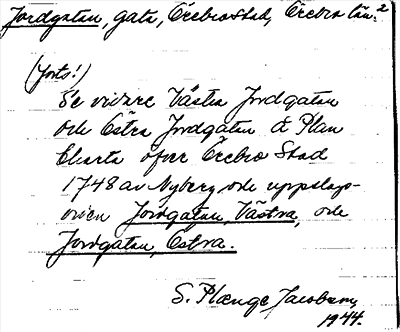 Jordgatan, gata, Örebro stad, Örebro län. 2
(forts!)
Se vidare Västra Jordgatan
och Östra Jordgatan å Plan
Charta öfver Örebro Stad
1748 av Nyberg, och uppslags-
orden Jordgatan, Västra, och
Jordgatan, Östra.
S. Plænge Jacobson
1944.